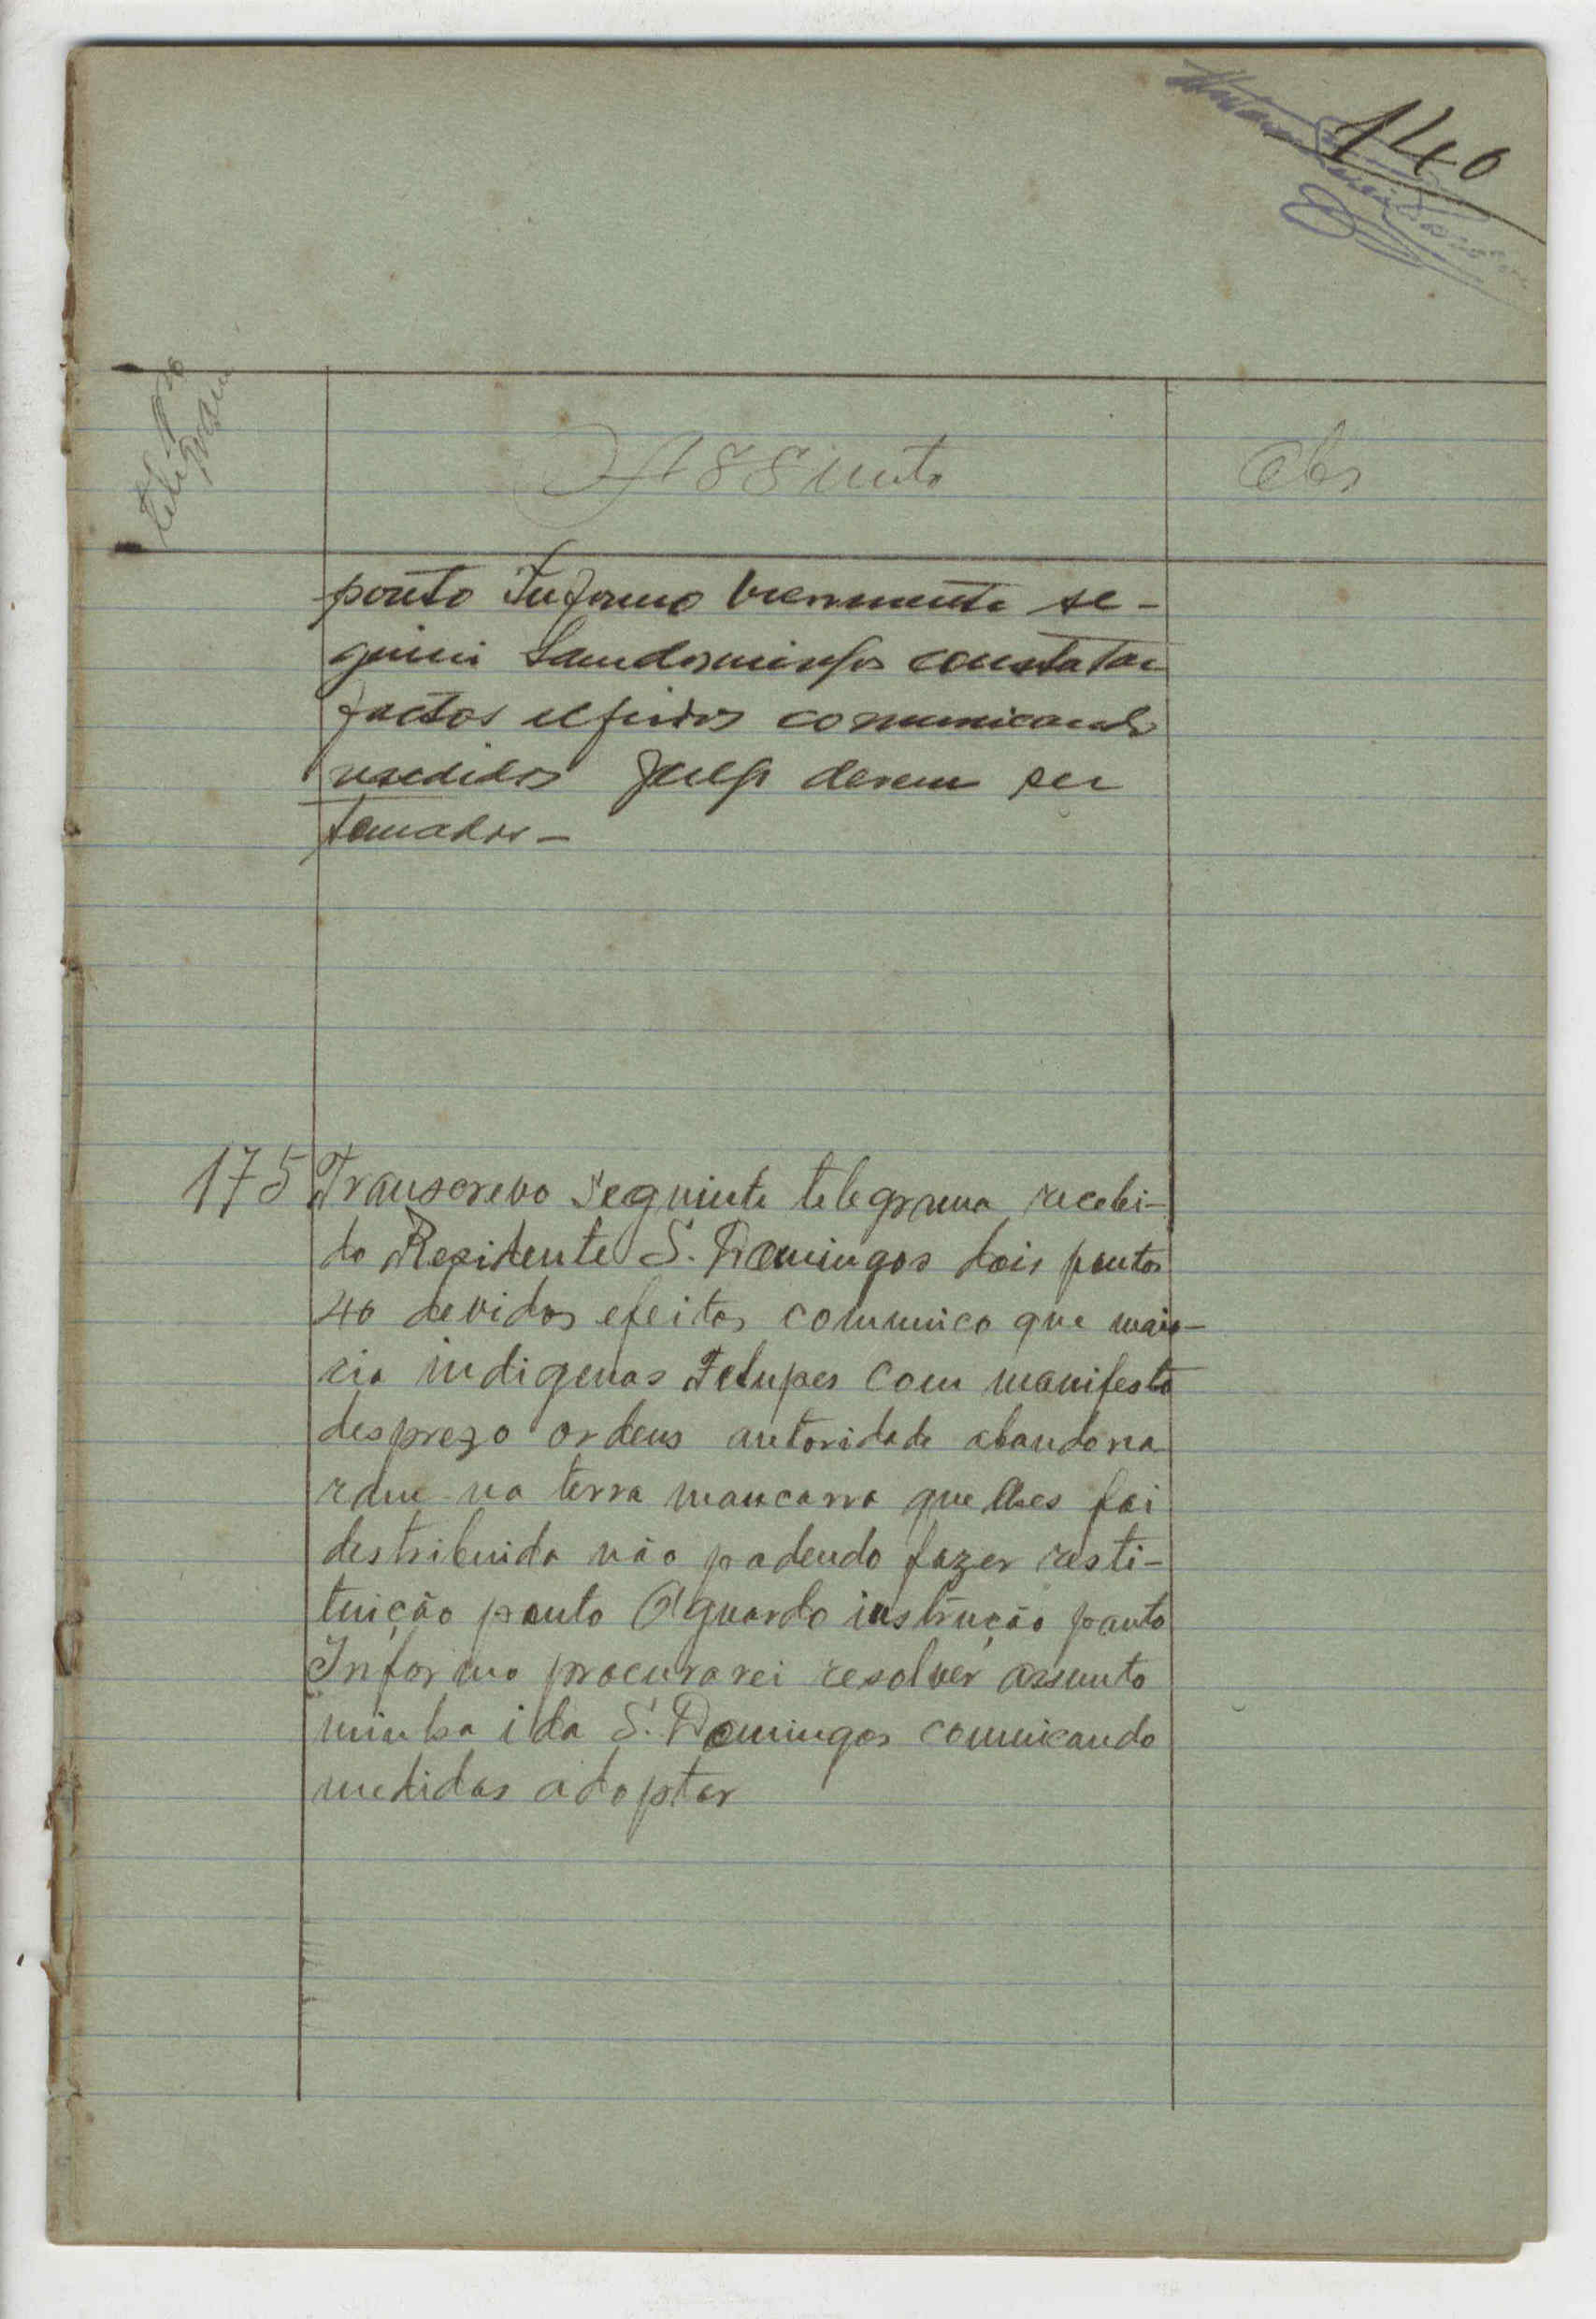 140
Nº do
telegrama
Assunto
Obs
ponto Informo brevemente se-
guirei Samdomingos constatar
factos referidos comunicando
medidas julgo devem ser
tomadas-
175 Transcrevo seguinte telegrama recebi-
do Residente S. Domingos dois pontos
40 devidos efeitos communico que maio-
ria indigenas Felupes com manifesto
desprezo ordens autoridade abandona
ram na terra mancarra que lhes foi
destribuida não podendo fazer resti-
tuição ponto Aguardo instrução ponto
Informo procurarei resolver assunto
minha ida S. Domingos comnicando
medidas adoptar